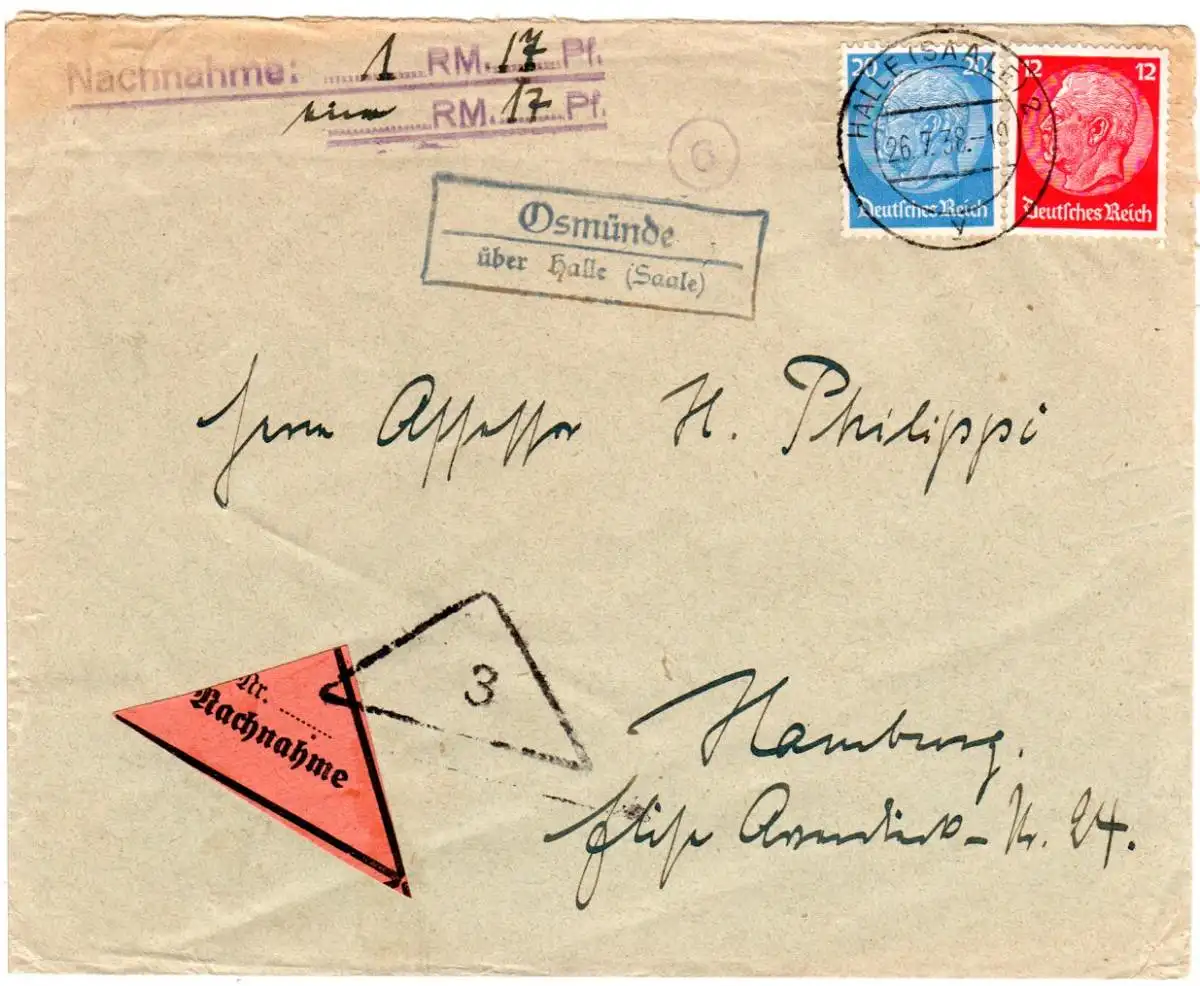 Nachnahme: 1 RM. 17 Pf.
ein RM. 17 Pf.
20 20
12 12
Deutsches Reich
Deutsches Reich
HALLE (SAALE) 2
26.7.38.-19
y
Osmünde
über Halle (Saale)
Herrn Assessor H. Philippi
Nr.
Nachnahme
3
Hamburg.
Elise Averdieck-Str. 24.